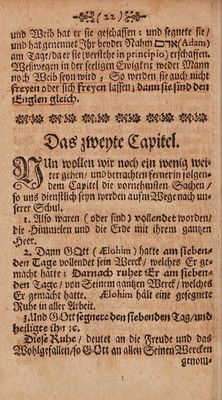 (22)
und Weib hat er sie geschaffen: und segnete sie/
und hat genennet Ihr beyder Nahm אדם (Adam)
am Tag/da er sie (verstehe in principio) erschaffen.
Weßwegen in der seeligen Ewigkeit weder Mann
noch Weib seyn wird; So werden sie auch nicht
freyen oder sich freyen lassen; dann sie sind den
Englen gleich.
Das zweyte Capitel.
NUn wollen wir noch ein wenig wei-
ter gehen/ und betrachten ferner in folgen-
dem Capitel die vornehmsten Sachen/
so uns dienstlich seyn werden aufm Wege nach un-
serer Schul.
1. Also waren (oder sind) vollendet worden/
die Himmelen und die Erde mit ihrem gantzen
Heer.
2. Dann GOtt (Ælohim) hatte am sieben-
den Tage vollendet sein Werck/ welches Er ge-
macht hatte; Darnach ruhet Er am sieben-
den Tage/ von Seinem gantzen Werck/ welches
Er gemacht hatte. Ælohim hält eine gesegnete
Ruhe in aller Arbeit.
3. Und GOtt segnete den siebenden Tag/und
heiligte ihn ꝛc.
Diese Ruhe/ deutet an die Freude und das
Wohlgefallen/so GOtt an allen Seinen Wercken
genom-